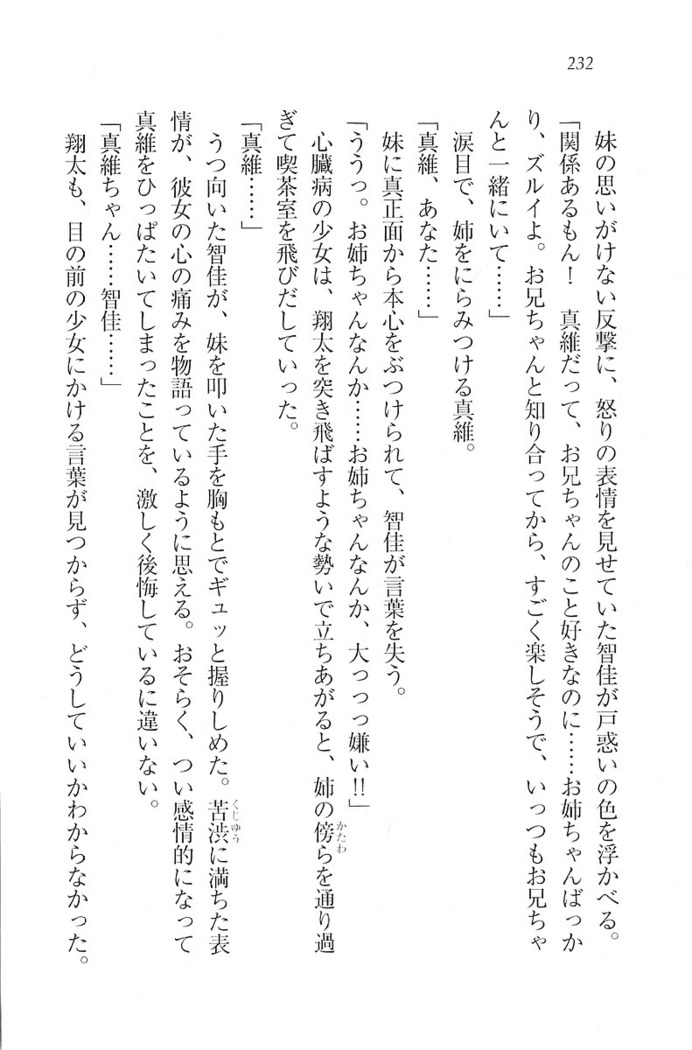 232
妹の思いがけない反撃に、怒りの表情を見せていた智佳が戸惑いの色を浮かべる。
「関係あるもん！　真維だって、お兄ちゃんのこと好きなのに……お姉ちゃんばっか
り、ズルイよ。お兄ちゃんと知り合ってから、すごく楽しそうで、いっつもお兄ちゃ
んと一緒にいて……」
涙目で、姉をにらみつける真維。
「真維、あなた……」
妹に真正面から本心をぶつけられて、智佳が言葉を失う。
「ううっ。お姉ちゃんなんか……お姉ちゃんなんか、大っっっ嫌い!!」
心臓病の少女は、翔太を突き飛ばすような勢いで立ちあがると、姉の傍らを通り過
かたわ
ぎて喫茶室を飛びだしていった。
「真維……」
うつ向いた智佳が、妹を叩いた手を胸もとでギュッと握りしめた。苦渋に満ちた表
くじゅう
情が、彼女の心の痛みを物語っているように思える。おそらく、つい感情的になって
真維をひっぱたいてしまったことを、激しく後悔しているに違いない。
「真維ちゃん……智佳……」
翔太も、目の前の少女にかける言葉が見つからず、どうしていいかわからなかった。